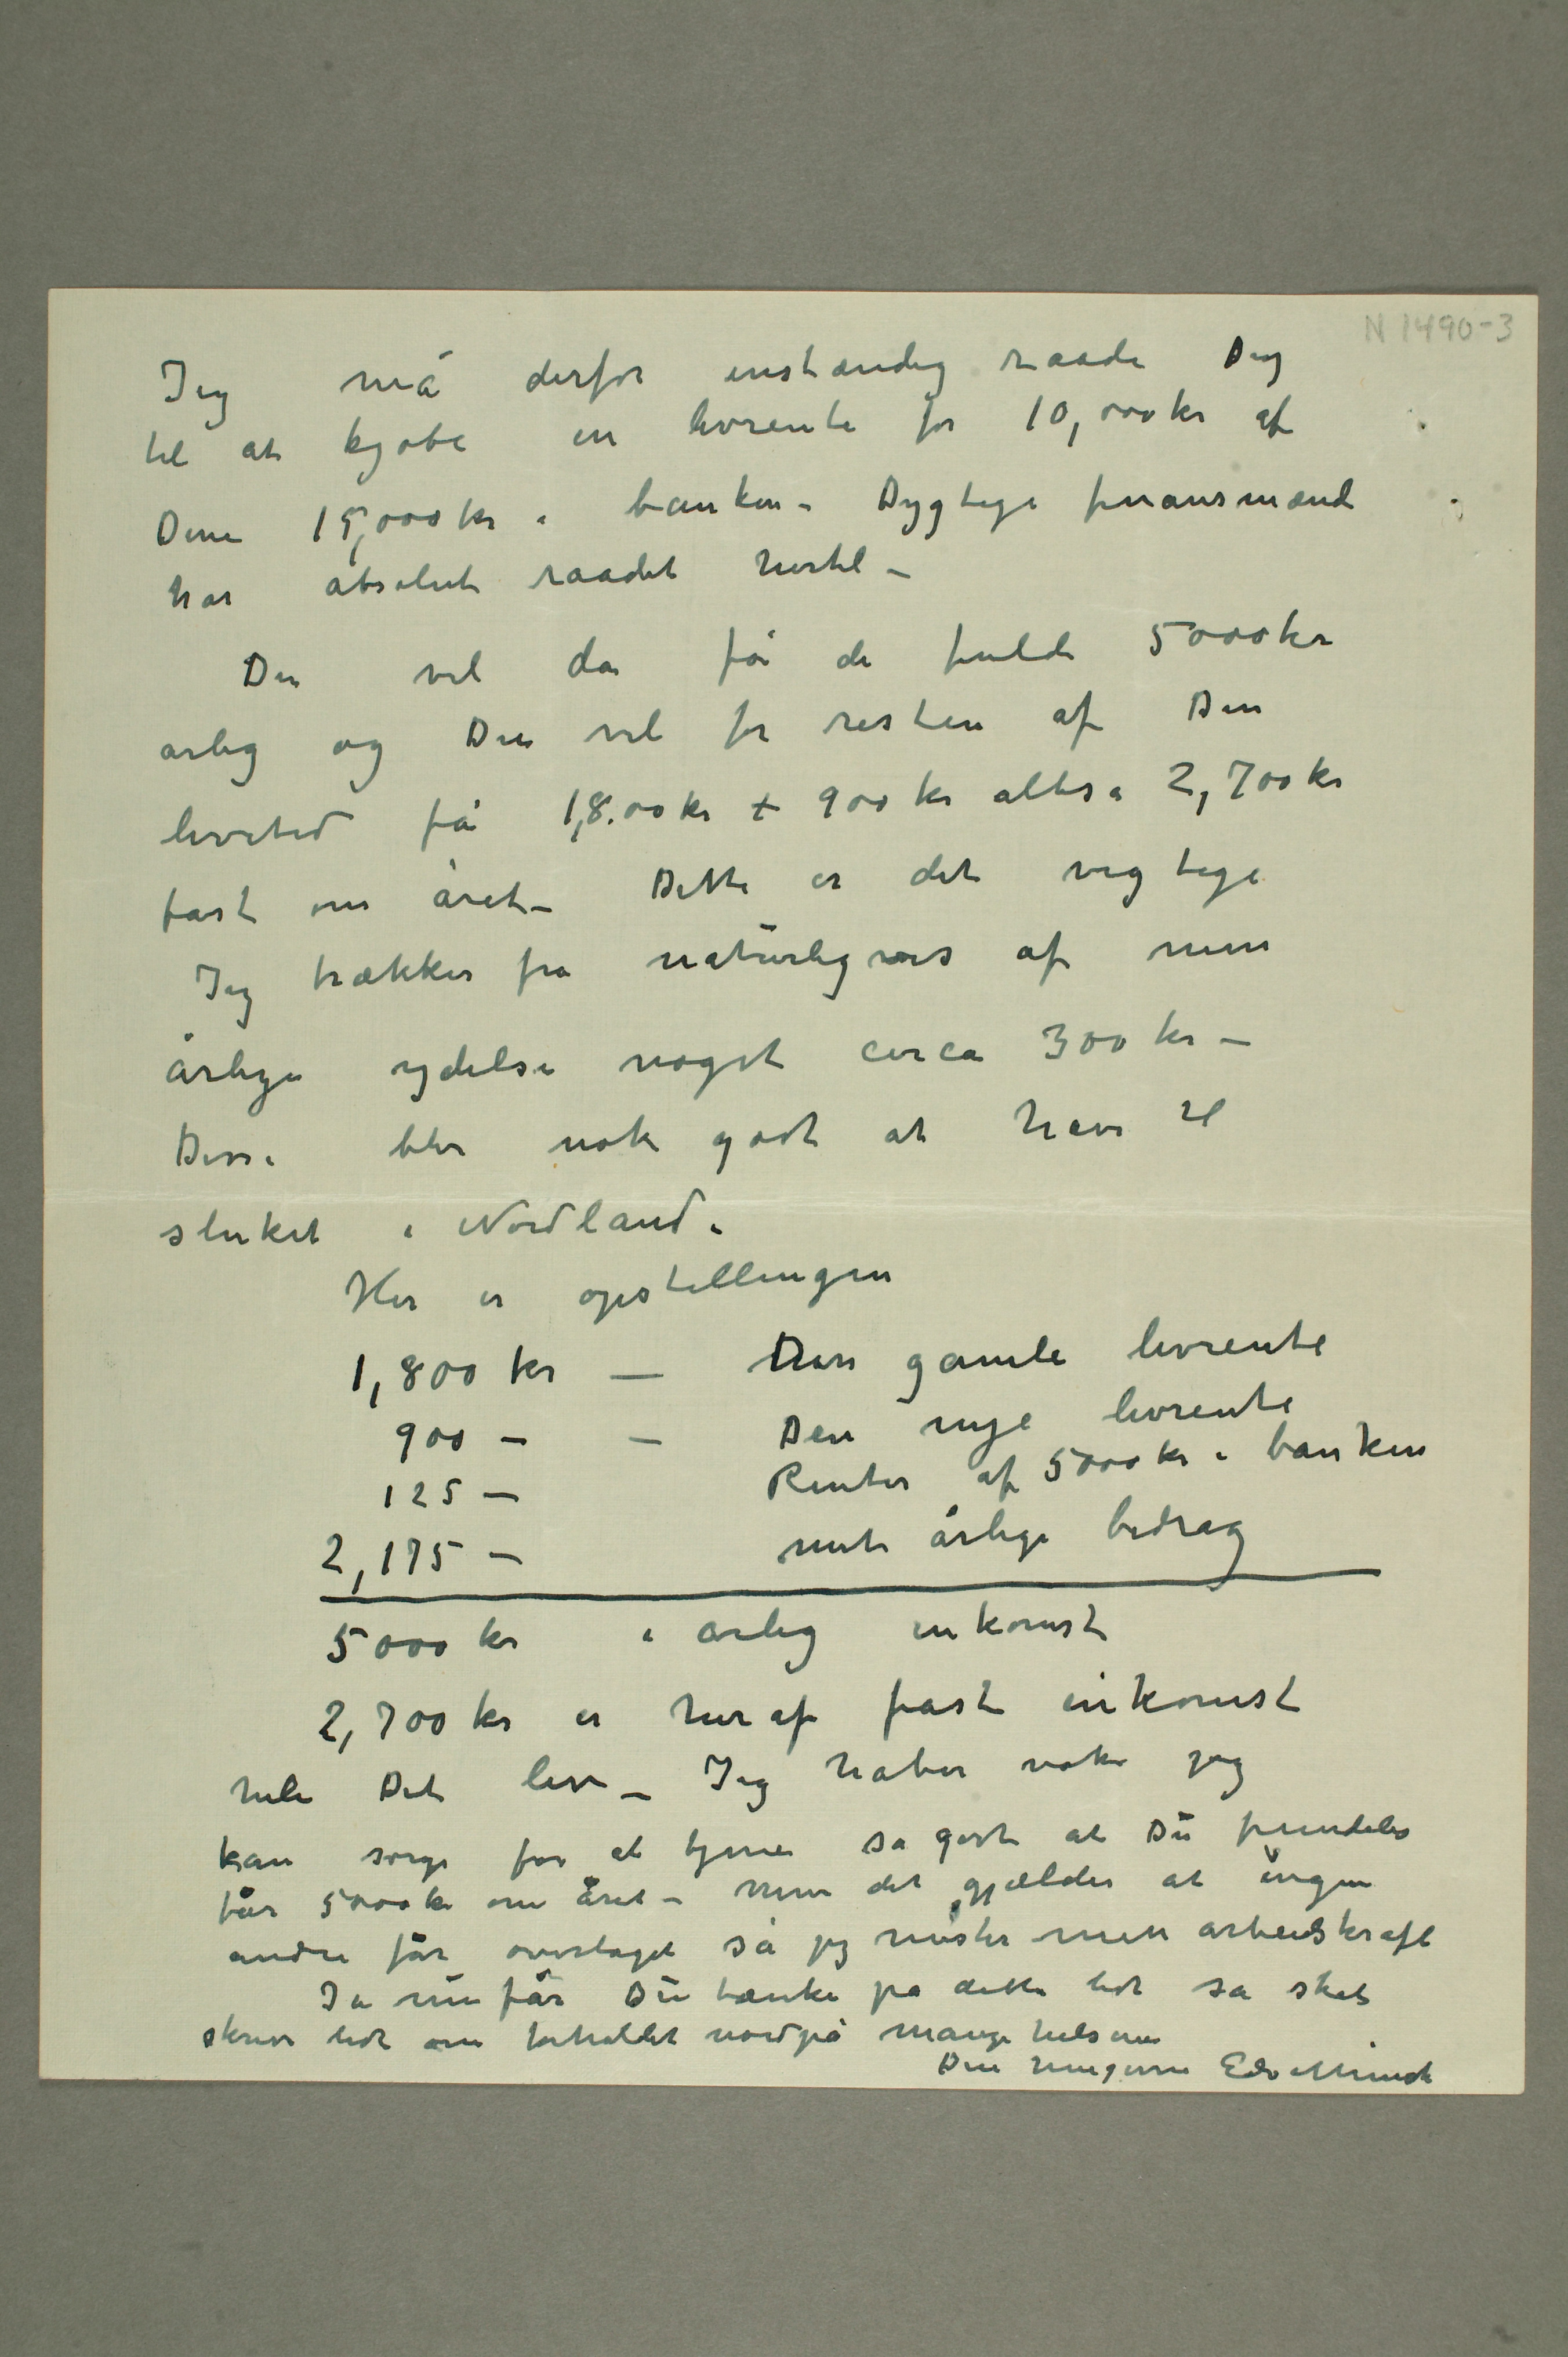 N 1490-3
Jeg må derfor instændig raade Dig
til at kjøbe en livrente for 10,000 kr af
Dine 15,000 kr i banken – Dygtige finansmænd
har absolut raadet hertil –
Du vil da få de fulde 5000 kr
årlig og Du vil for resten af Din
livstid få 1,8.00 kr + 900 kr altså 2,700 kr
fast om året – Dette er det vigtige
Jeg trækker fra naturligvis af min
årlige ydelse noget circa 300 kr –
Disse blir nok godt at have til
sluket i Nordland.
Her er opstillingen
1,800 kr — Den gamle livrente
900 – – Den nye livrente
125 – Renter af 5000 kr i banken
2,175 – mit årlige bidrag
5000 kr i årlig inkomst
2,700 kr er heraf fast inkomst
hele Dit liv – Jeg håber nok jeg
kan sørge for at tjene så godt at Du fremdeles
får 5000 kr om året – men det gjælder at ingen
andre får overtaget så jeg mister min arbeidskraft
Ja nu får Du tænke på dette lidt så skal
skrive lidt om forholdet nordpå mange hilsener
Din hengivne Edv Munch